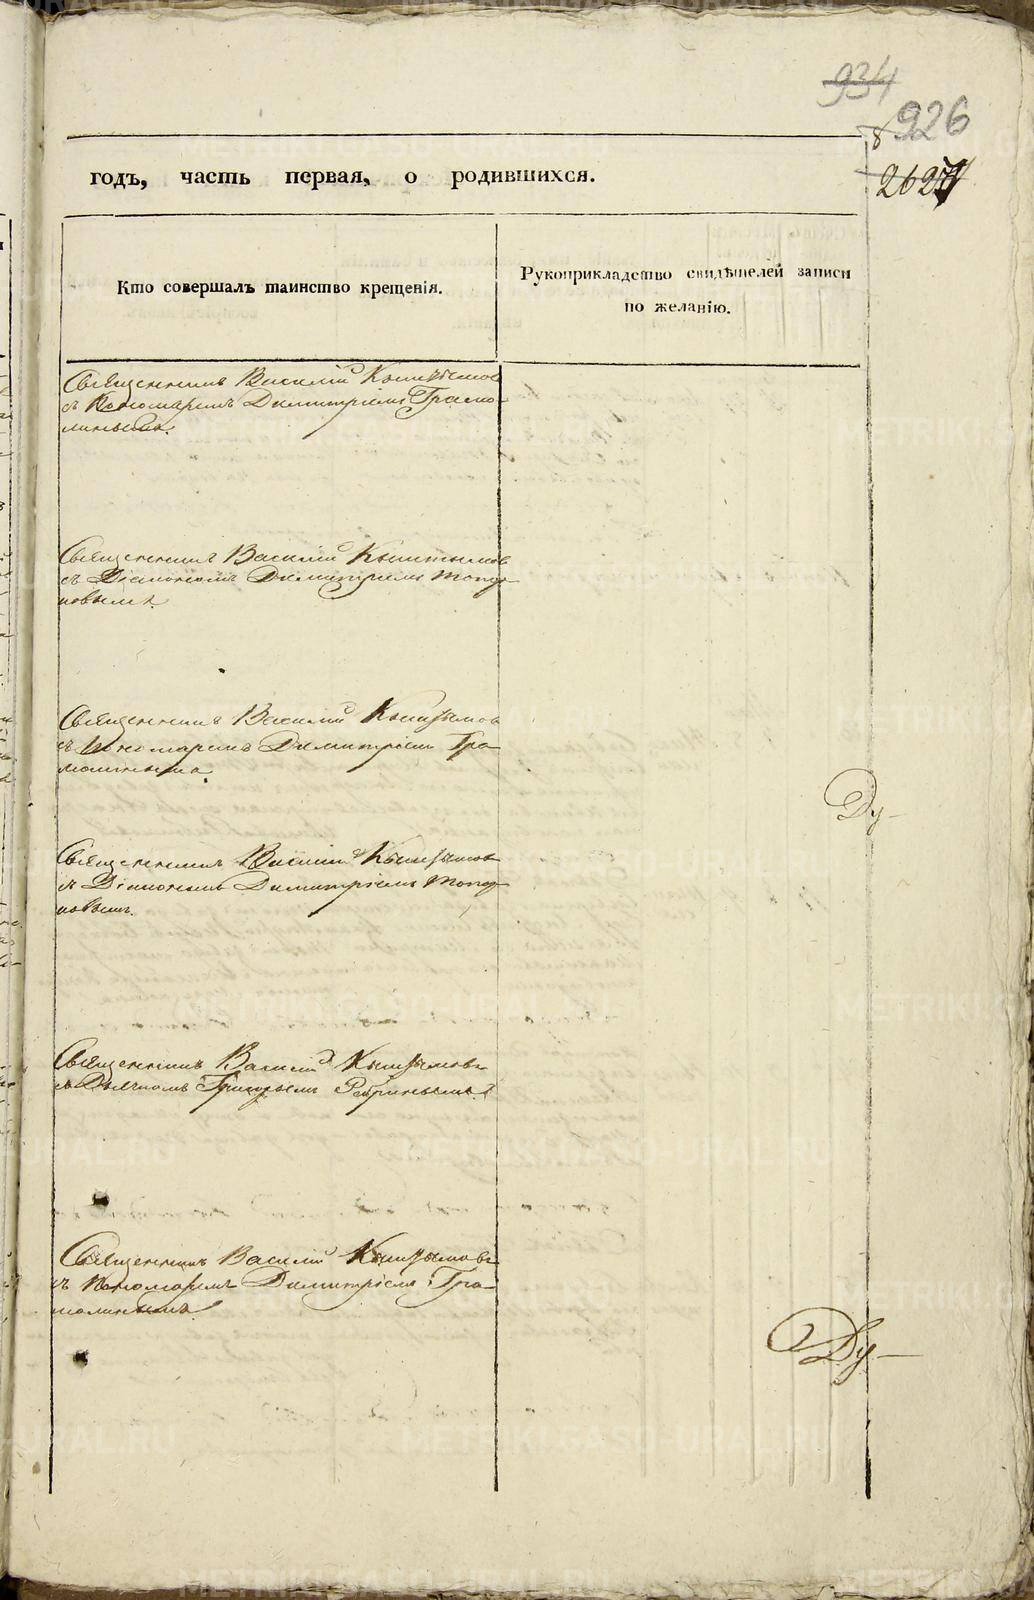 934
926
8
2627
годъ, часть первая, о родившихся.
Кто совершалъ таинство крещенія.
Рукоприкладство свидѣтелей записи
по желанію.
Священникъ Василій Кыштымов
съ Пономаремъ Димитріемъ Грамо-
линымъ.
Священникъ Василій Кыштымов
съ Діакономъ Димитріемъ Топор-
ковымъ.
Священникъ Василій Кыштымов
съ Пономаремъ Димитріемъ Гра-
молинымъ.
Священникъ Василій Кыштымов
съ Діакономъ Димитріемъ Топор-
ковымъ.
Священникъ Василій Кыштымовъ
съ Дьячкомъ Григорьемъ
Священникъ Василій Кыштымовъ
съ Пономаремъ Димитріемъ Гра-
молинымъ
Ду-
Ду-
METRIKI.GASO-URAL.RU